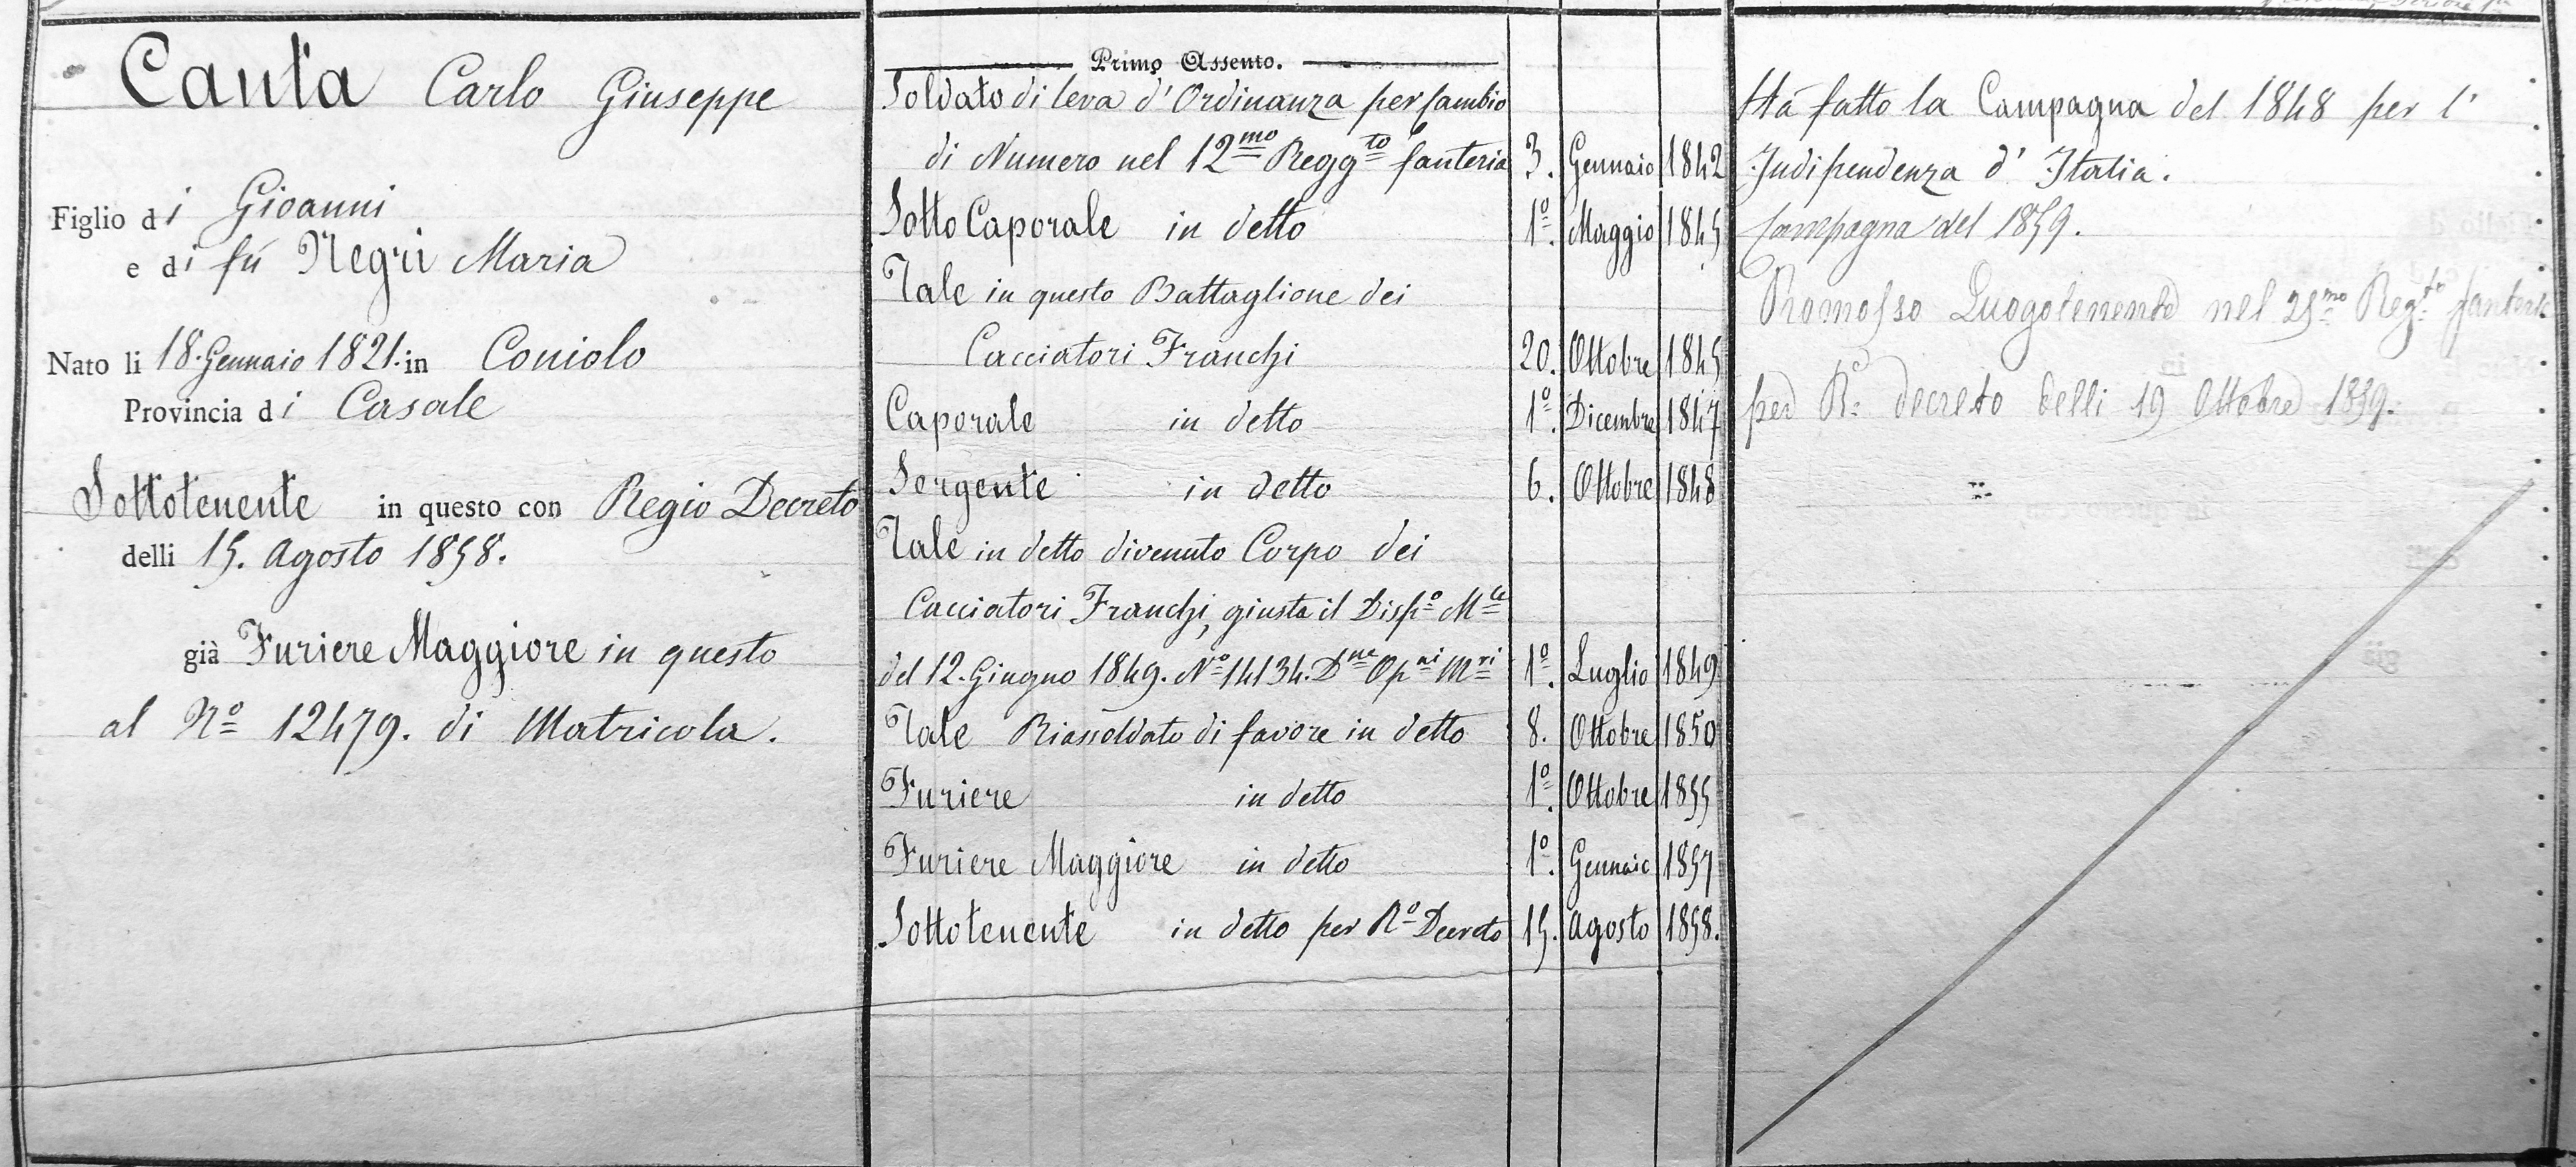 Canta Carlo Giuseppe
Figlio di Gioanni
e di fú Negri Maria
Nato li 18. Gennaio 1821. in Coniolo
Provincia di Casale
Sottotenente in questo con Regio Decreto
delli 15. Agosto 1858.
già Furiere Maggiore in questo
al Nº 12479. di Matricola.
Primo Assento.
Soldato di leva d'Ordinanza per Cambio
di Numero nel 12mo Reggto fanteria 3. Gennaio 1842
Sotto Caporale in detto 1º. Maggio 1845
Tale in questo Battaglione dei
Cacciatori Franchi 20. Ottobre 1845
Caporale in detto 1º. Dicembre 1847
Sergente in detto 6. Ottobre 1848
Tale in detto divenuto Corpo dei
Cacciatori Franchi, giusta il Dispº Mle
del 12. Giugno 1849. Nº 14134. Dne Opni Mri 1º. Luglio 1849
Tale Riassoldato di favore in detto 8. Ottobre 1850
Furiere in detto 1º. Ottobre 1855
Furiere Maggiore in detto 1º. Gennaio 1857
Sottotenente in detto per Rº Decreto 15. Agosto 1858.
Ha fatto la Campagna del 1848 per l'
Indipendenza d'Italia.
Campagna del 1859.
Promosso Luogotenente nel 25mo Regto fanteria
per Rº decreto delli 19 Ottobre 1859.